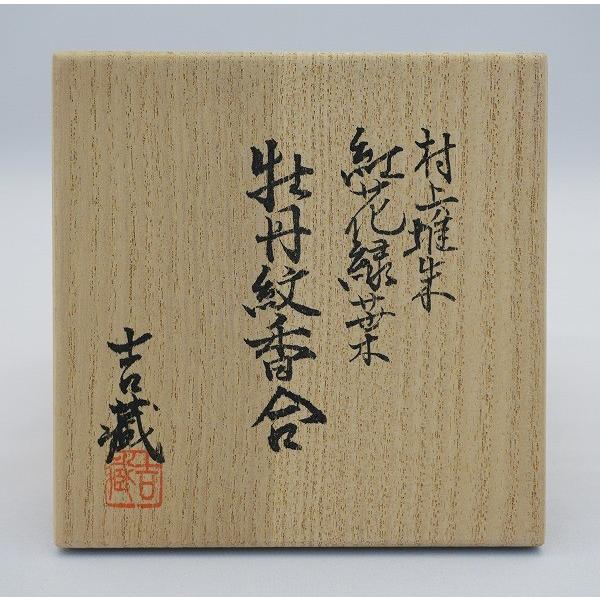 村上堆朱
紅花緑葉
牡丹紋香合
吉藏
吉藏